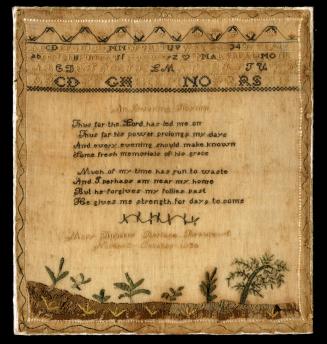 CD MN UV 34
MA MO
LM TU
CD GH NO RS
An Evening Hymn
Thus far the Lord has led me on
Thus far his power prolongs my days
And every evening should make known
Some fresh memorials of his grace
Much of my time has run to waste
And I perhaps am near my home
But he forgives my follies past
He gives me strength for days to come
Mary
October